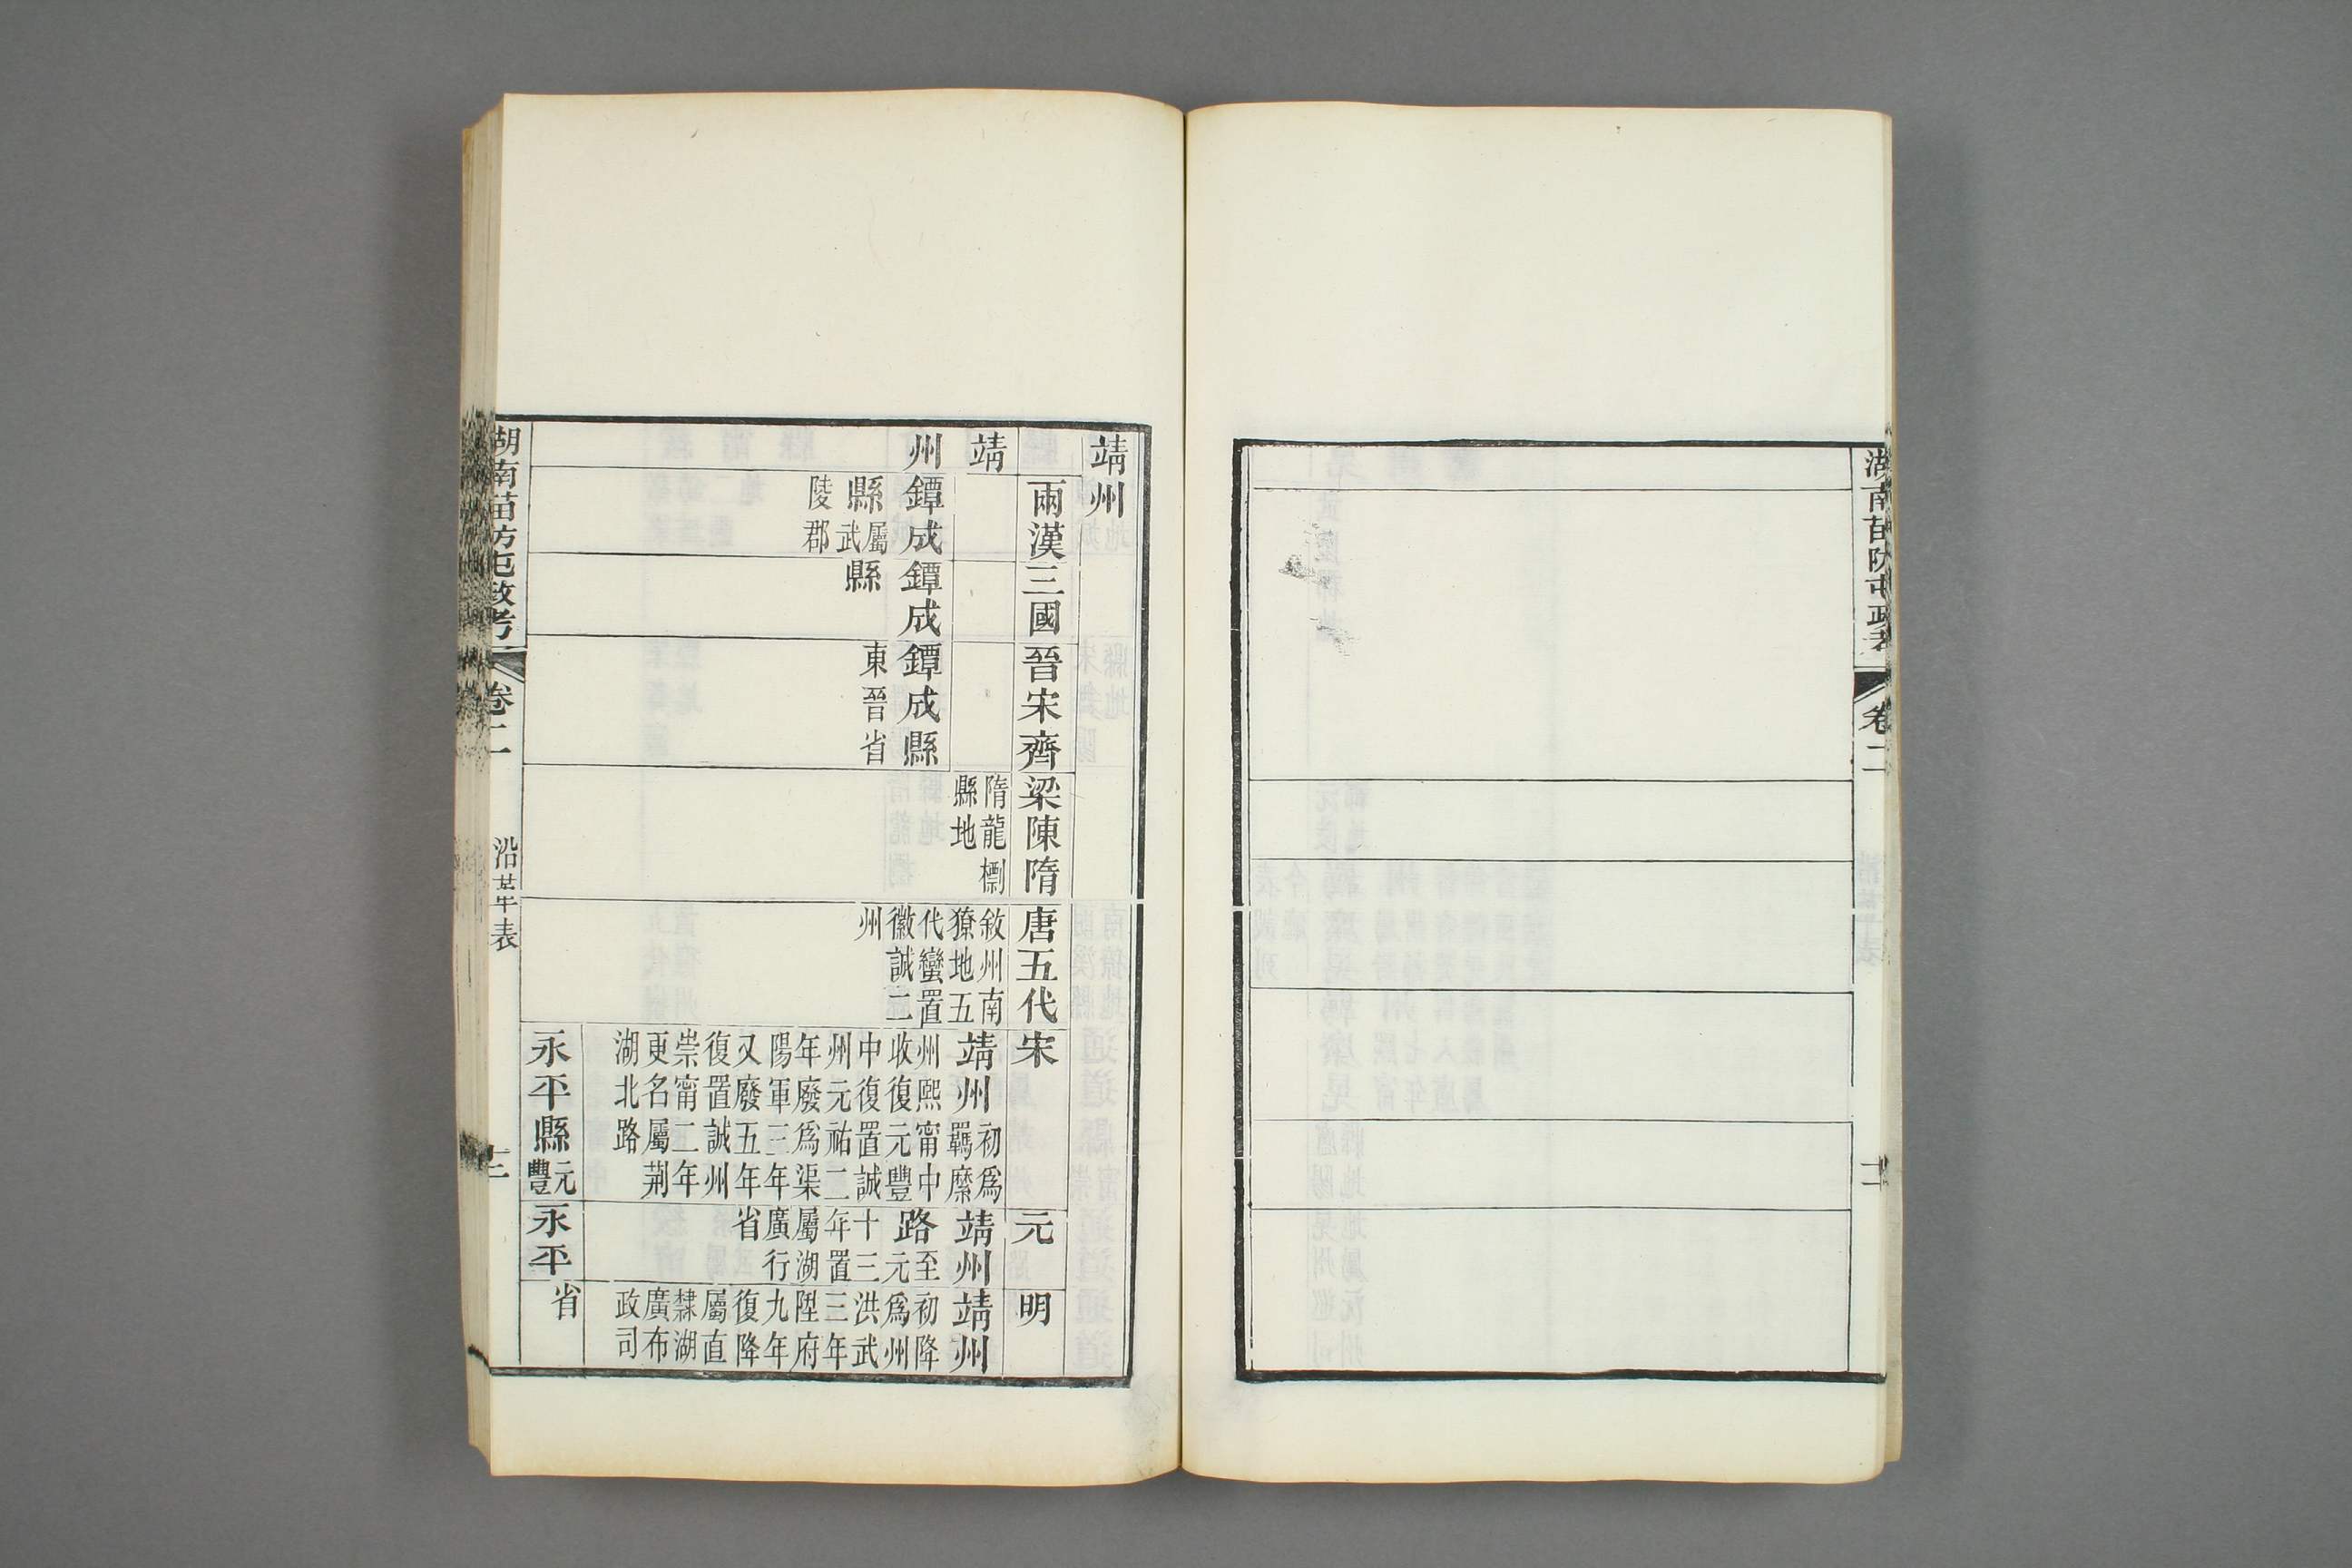 湖南苗防屯政考
卷二
靖州
兩漢
三國
晉宋齊
梁陳隋
唐五代
宋
元
明
靖
州
鐔成
縣屬武
陵郡
鐔成
縣
鐔成縣
東晉省
隋龍標
縣地
敘州南
獠地五
代蠻置
徽誠二
州
靖州初爲
羈縻
州熙甯中
收復元豐
中復置誠
州元祐二
年廢爲渠
陽軍三年
又廢五年
復置誠州
崇甯二年
更名屬荆
湖北路
靖州
路至元
十三
年置
屬湖
廣行
省
靖州
初降
爲州
洪武
三年
陞府
九年
復降
屬直
隸湖
廣布
政司
永平縣元
豐
永平
省
湖南苗防屯政考
卷二
沿革表